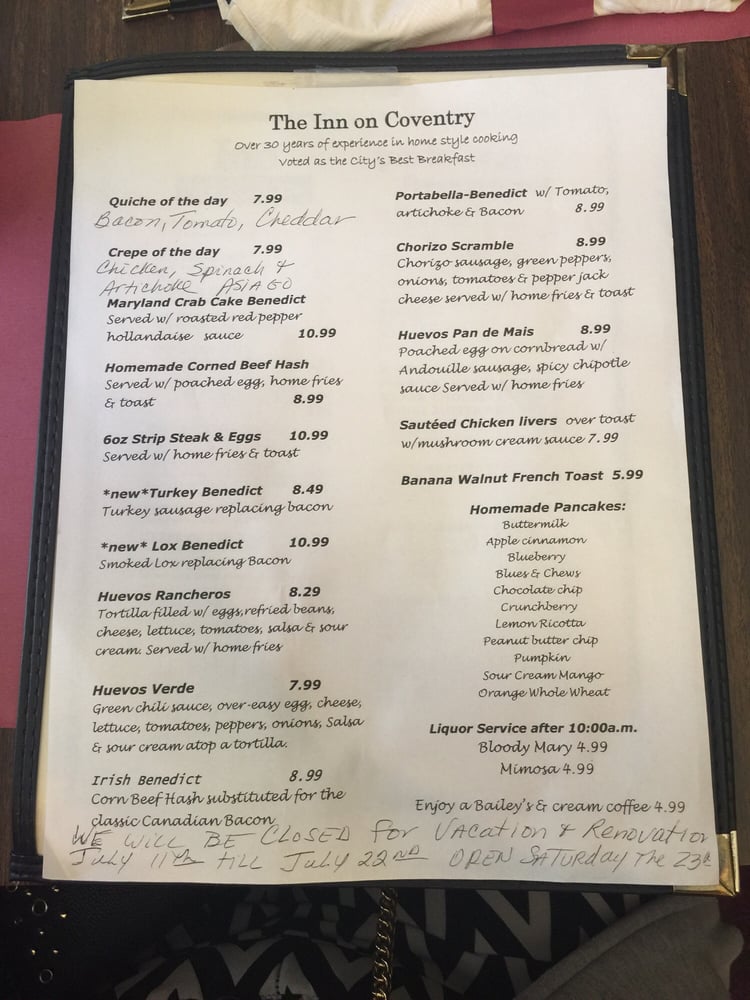 The Inn on Coventry
Over 30 years of experience in home style cooking
Voted as the City's Best Breakfast
Quiche of the day 7.99
Bacon, Tomato, Cheddar
Crepe of the day 7.99
Chicken, Spinach &
Artichoke ASIAGO
Maryland Crab Cake Benedict
Served w/ roasted red pepper
hollandaise sauce 10.99
Homemade Corned Beef Hash
Served w/ poached egg, home fries
& toast 8.99
6oz Strip Steak & Eggs 10.99
Served w/ home fries & toast
*new*Turkey Benedict 8.49
Turkey sausage replacing bacon
*new* Lox Benedict 10.99
Smoked Lox replacing Bacon
Huevos Rancheros 8.29
Tortilla filled w/ eggs,refried beans,
cheese, lettuce, tomatoes, salsa & sour
cream. Served w/ home fries
Huevos Verde 7.99
Green chili sauce, over-easy egg, cheese,
lettuce, tomatoes, peppers, onions, Salsa
& sour cream atop a tortilla.
Irish Benedict 8.99
Corn Beef Hash substituted for the
classic Canadian Bacon
Portabella-Benedict w/ Tomato,
artichoke & Bacon 8.99
Chorizo Scramble 8.99
Chorizo sausage, green peppers,
onions, tomatoes & pepper jack
cheese served w/ home fries & toast
Huevos Pan de Mais 8.99
Poached egg on cornbread w/
Andouille sausage, spicy chipotle
sauce Served w/ home fries
Sautéed Chicken livers over toast
w/mushroom cream sauce 7.99
Banana Walnut French Toast 5.99
Homemade Pancakes:
Buttermilk
Apple cinnamon
Blueberry
Blues & Chews
Chocolate chip
Crunchberry
Lemon Ricotta
Peanut butter chip
Pumpkin
Sour Cream Mango
Orange Whole Wheat
Liquor Service after 10:00a.m.
Bloody Mary 4.99
Mimosa 4.99
Enjoy a Bailey's & cream coffee 4.99
WE WILL BE CLOSED for VACATION & Renovation
July 11th till July 22ND OPEN SATURDAY The 23rd